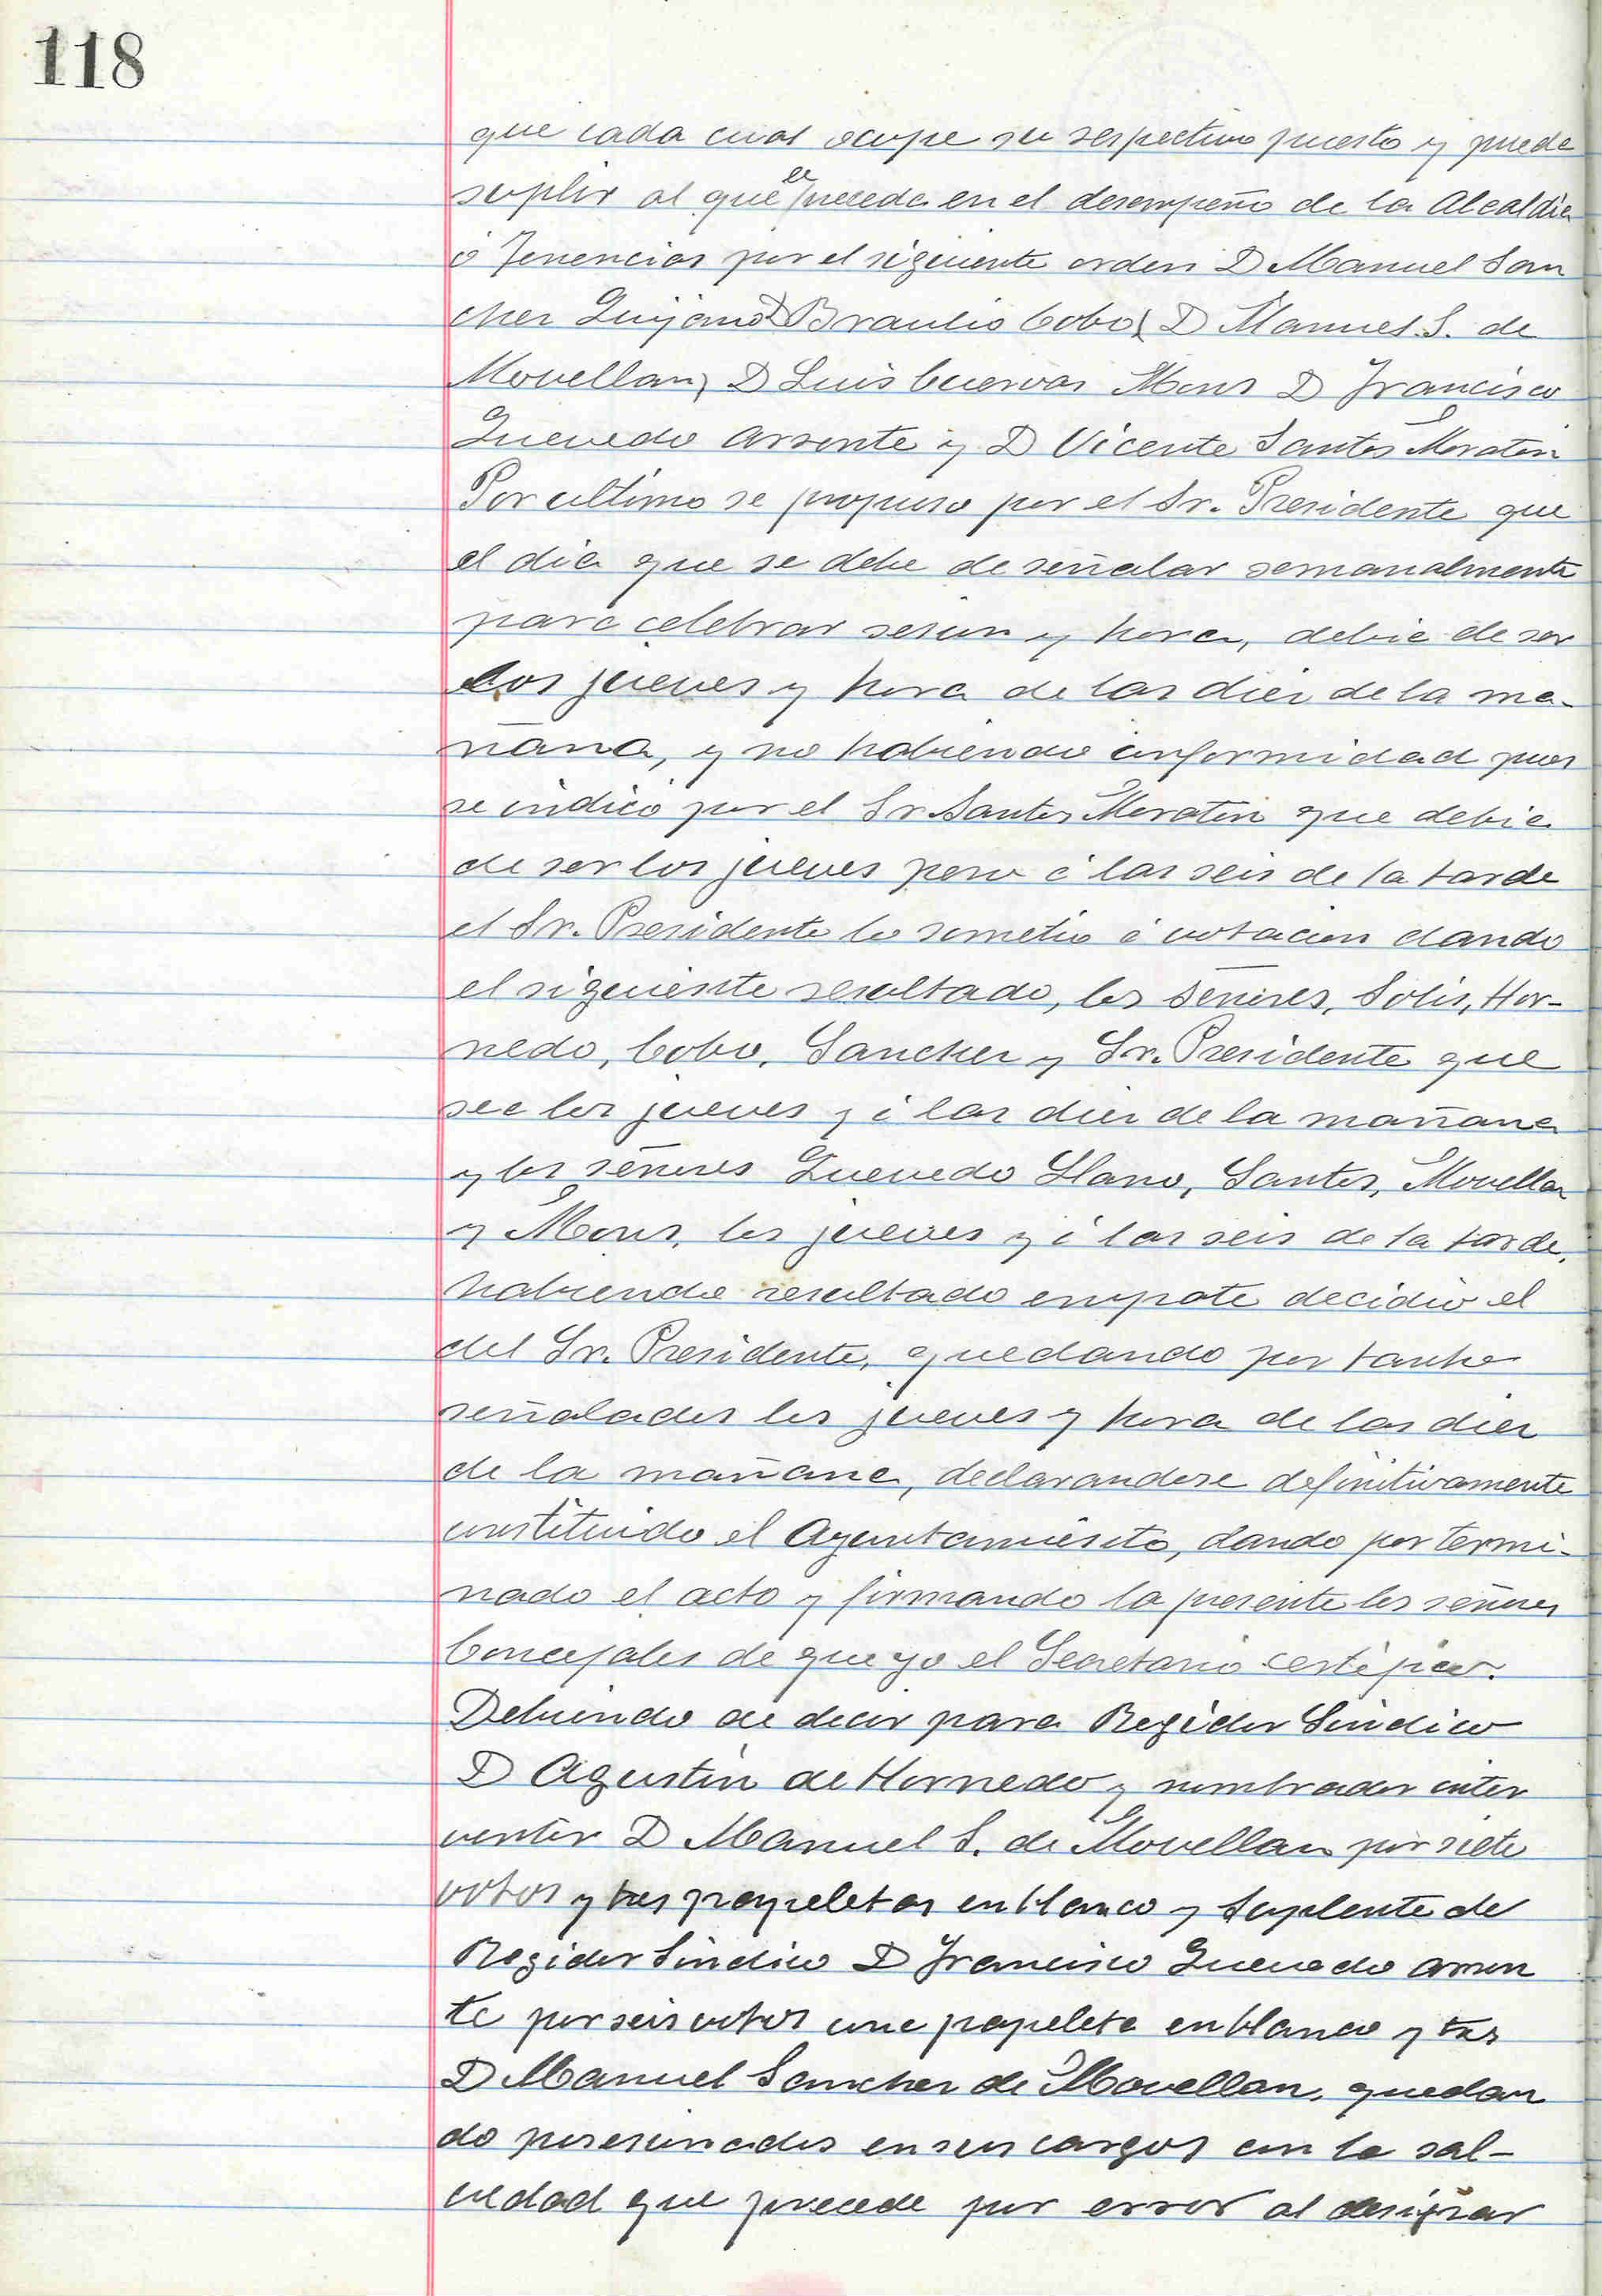 118
que cada cual ocupe su respectivo puesto y puede
suplir al que le precede en el desempeño de la Alcaldia
ó Tenencias por el siguiente orden D Manuel San
chez Quijano D Braulio Cobo, D Manuel S. de
Movellan, D Luis Cuervas Mons D Francisco
Quevedo Arronte y D Vicente Santos Moratin
Por ultimo se propuso por el Sr. Presidente que
el dia que se debe de señalar semanalmente
para celebrar sesion y hora, debia de ser
los jueves y hora de las diez de la ma-
ñana, y no habiendo conformidad pues
se indicó por el Sr Santos Moratin que debia
de ser los jueves pero á las seis de la tarde
el Sr. Presidente lo sometio á votacion dando
el siguiente resultado, los señores, Solis, Hor-
nedo, Cobo, Sanchez y Sr. Presidente que
sea los jueves y á las diez de la mañana
y los señores Quevedo Llano, Santos, Movellan
y Mons, los jueves y á las seis de la tarde,
habiendo resultado empate decidió el
del Sr. Presidente, quedando por tanto
señalados los jueves y hora de las diez
de la mañana, declarandose definitivamente
constituido el Ayuntamiento, dando por termi-
nado el acto y firmando la presente los señores
Concejales de que yo el Secretario certifico.
Debiendo de decir para Regidor Sindico
D Agustin de Hornedo y nombrador inter
ventor D Manuel S. de Movellan por siete
votos y tres papeletas en blanco y Suplente de
Regidor Sindico D Francisco Quevedo Arron
te por seis votos una papeleta en blanco y tres
D Manuel Sanchez de Movellan, quedan
do posesionados en sus cargos con la sal-
vedad que precede por error al designar